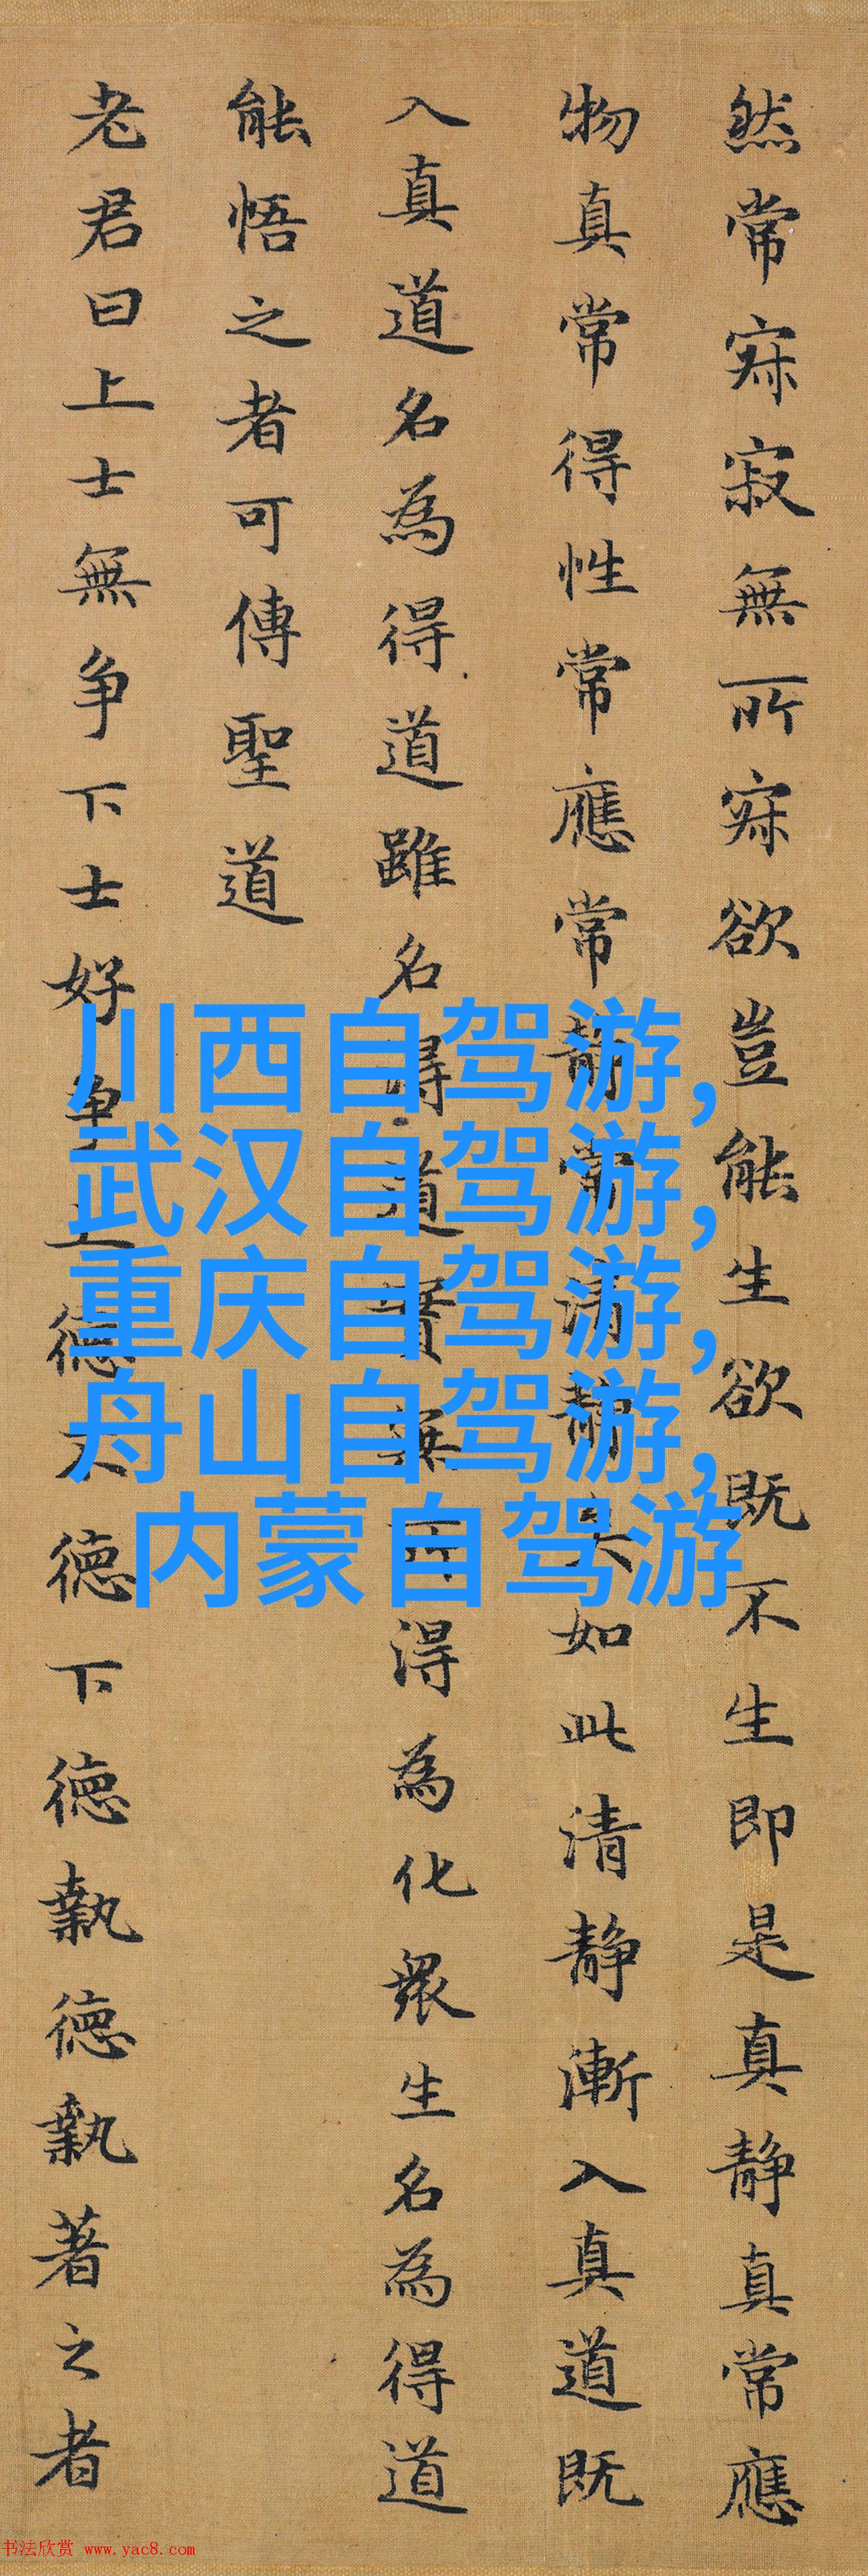 然常寂寂無所寂欲豈能生欲既不生即是真静真常應
物真常得性常應常静常清静矣如此清静漸入真道既
入真道名為得道雖名得道實無所得為化衆生名為得道
能悟之者可傳聖道
老君曰上士無争下士好争上德不德下德執德執著之者
川西自驾游,
武汉自驾游,
重庆自驾游,
舟山自驾游,
内蒙自驾游
书法欣赏 www.yac8.com